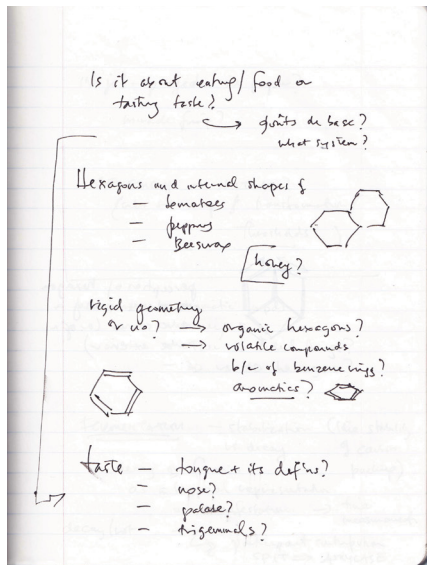 Is it about eating/food or
tasting taste?
→ goûts de base?
what system?
Hexagons and internal shapes of
— tomatoes
— peppers
— Beeswax
honey?
rigid geometry
or no? → organic hexagons?
→ volatile compounds
b/c of benzene rings?
aromatics?
taste — tongue + its defins?
— nose?
— palate?
— trigeminals?